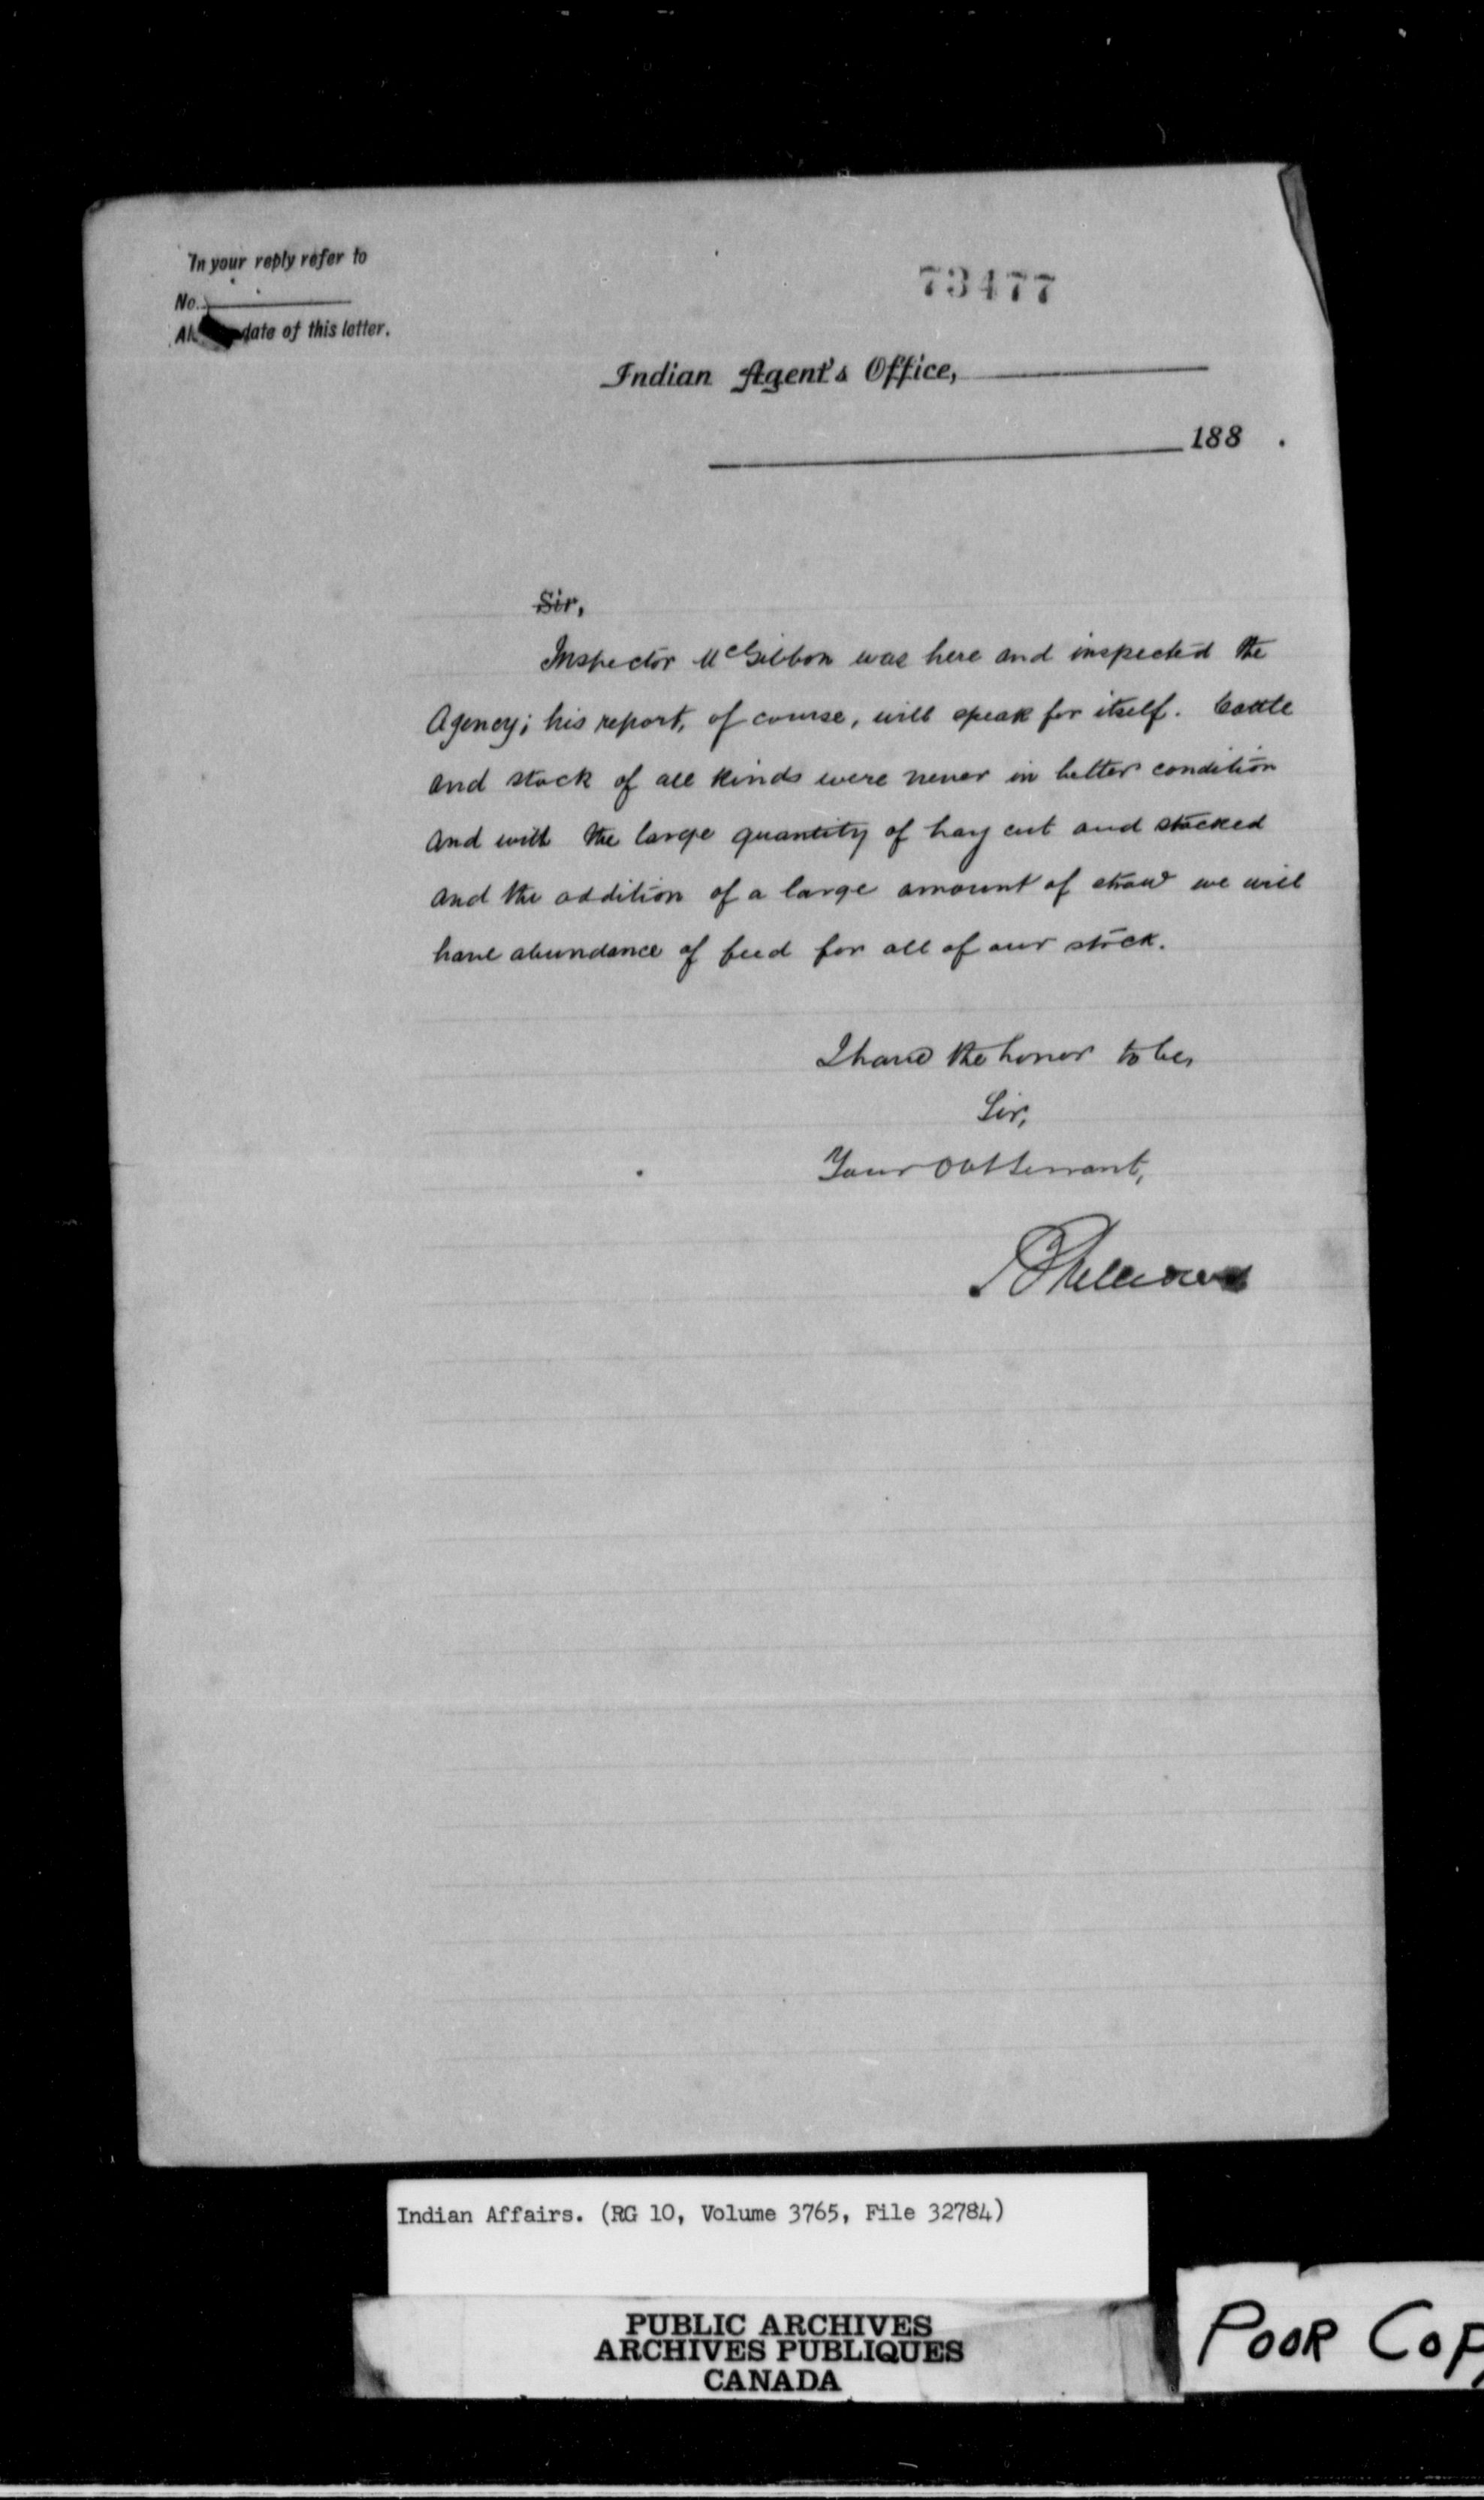 In your reply refer to
No.
date of this letter.
73477
Indian Agent's Office,
188 .
Sir,
Inspector McGibbon was here and inspected the
Agency; his report, of course, will speak for itself. Cattle
and stock of all kinds were never in better condition
and with the large quantity of hay cut and stacked
and the addition of a large amount of straw we will
have abundance of feed for all of our stock.
I have the honor to be,
Sir,
Your Obt Servant,
Indian Affairs. (RG 10, Volume 3765, File 32784)
PUBLIC ARCHIVES
ARCHIVES PUBLIQUES
CANADA
POOR COP